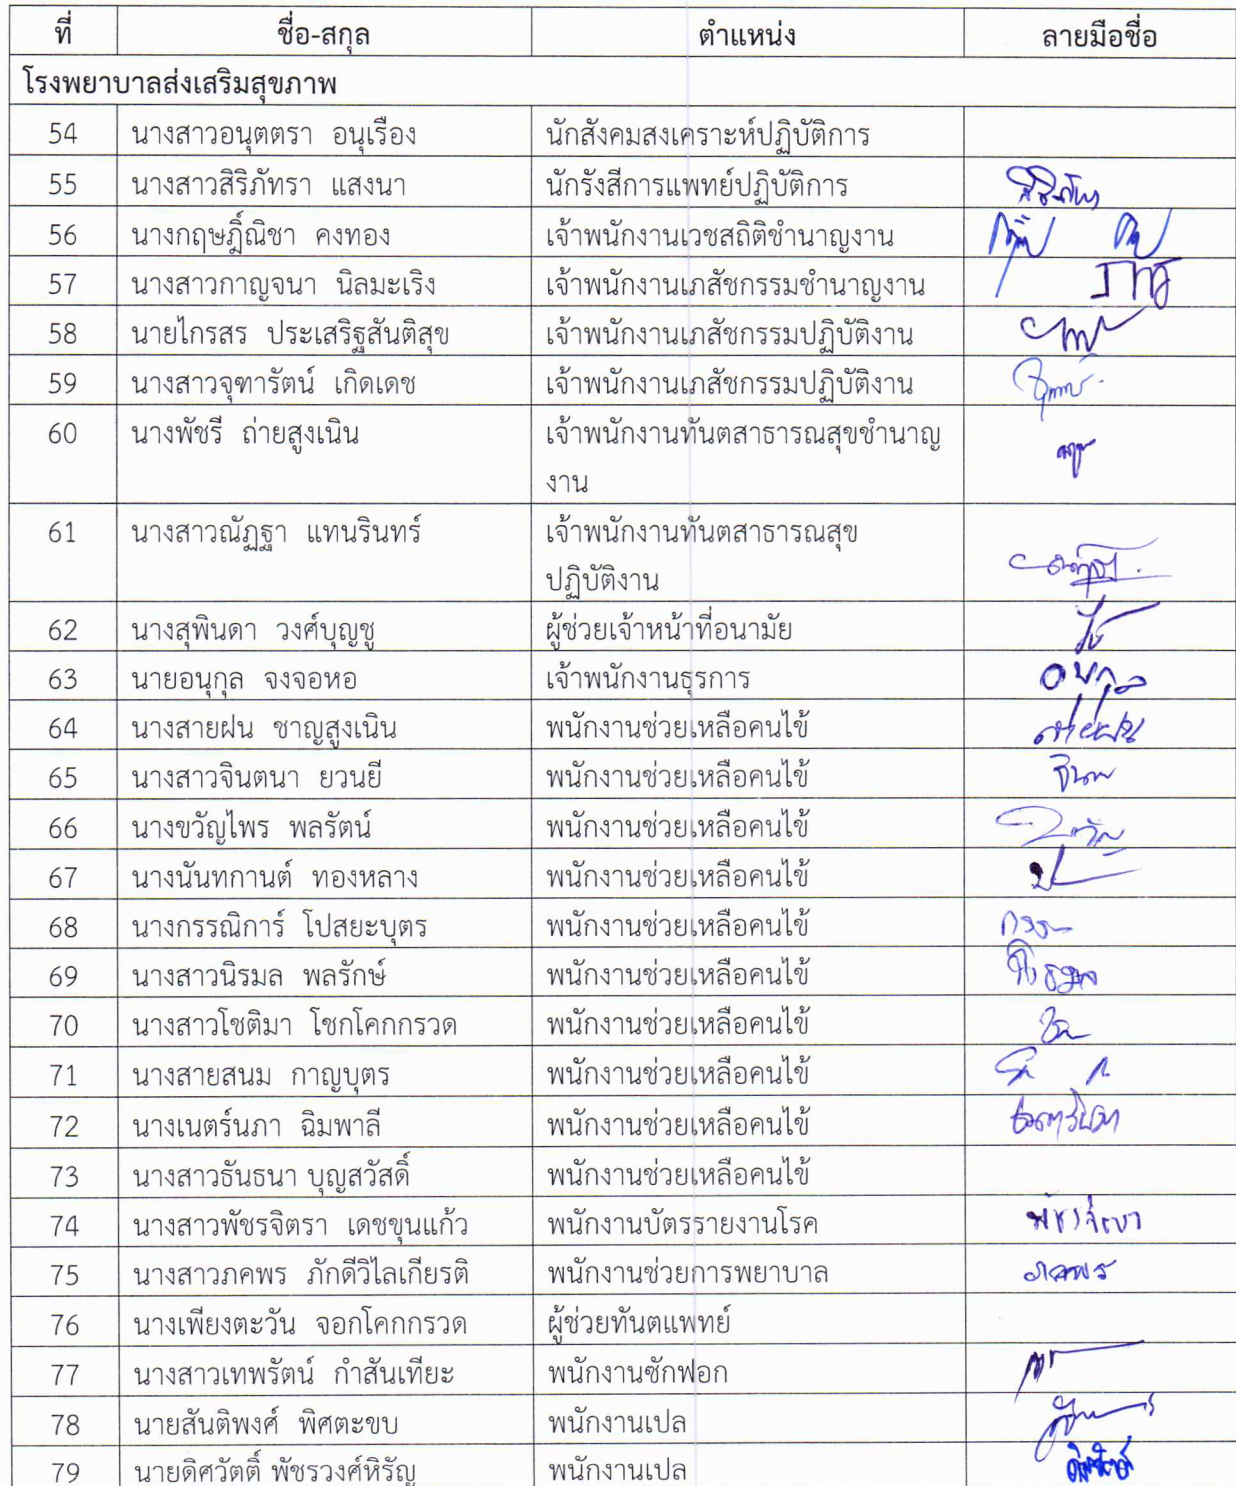 ที่ ชื่อ-สกุล ตำแหน่ง ลายมือชื่อ
โรงพยาบาลส่งเสริมสุขภาพ
54 นางสาวอนุตตรา อนุเรือง นักสังคมสงเคราะห์ปฏิบัติการ
55 นางสาวสิริภัทรา แสงนา นักรังสีการแพทย์ปฏิบัติการ
56 นางกฤษฎิ์ณิชา คงทอง เจ้าพนักงานเวชสถิติชำนาญงาน
57 นางสาวกาญจนา นิลมะเริง เจ้าพนักงานเภสัชกรรมชำนาญงาน
58 นายไกรสร ประเสริฐสันติสุข เจ้าพนักงานเภสัชกรรมปฏิบัติงาน
59 นางสาวจุฑารัตน์ เกิดเดช เจ้าพนักงานเภสัชกรรมปฏิบัติงาน
60 นางพัชรี ถ่ายสูงเนิน เจ้าพนักงานทันตสาธารณสุขชำนาญ
งาน
61 นางสาวณัฏฐา แทนรินทร์ เจ้าพนักงานทันตสาธารณสุข
ปฏิบัติงาน
62 นางสุพินดา วงศ์บุญชู ผู้ช่วยเจ้าหน้าที่อนามัย
63 นายอนุกุล จงจอหอ เจ้าพนักงานธุรการ อนุกุล
64 นางสายฝน ชาญสูงเนิน พนักงานช่วยเหลือคนไข้ สายฝน
65 นางสาวจินตนา ยวนยี พนักงานช่วยเหลือคนไข้
66 นางขวัญไพร พลรัตน์ พนักงานช่วยเหลือคนไข้
67 นางนันทกานต์ ทองหลาง พนักงานช่วยเหลือคนไข้
68 นางกรรณิการ์ โปสยะบุตร พนักงานช่วยเหลือคนไข้
69 นางสาวนิรมล พลรักษ์ พนักงานช่วยเหลือคนไข้
70 นางสาวโชติมา โชกโคกกรวด พนักงานช่วยเหลือคนไข้
71 นางสายสนม กาญบุตร พนักงานช่วยเหลือคนไข้
72 นางเนตร์นภา ฉิมพาลี พนักงานช่วยเหลือคนไข้
73 นางสาวธันธนา บุญสวัสดิ์ พนักงานช่วยเหลือคนไข้
74 นางสาวพัชรจิตรา เดชขุนแก้ว พนักงานบัตรรายงานโรค
75 นางสาวภคพร ภักดีวิไลเกียรติ พนักงานช่วยการพยาบาล ภคพร
76 นางเพียงตะวัน จอกโคกกรวด ผู้ช่วยทันตแพทย์
77 นางสาวเทพรัตน์ กำสันเทียะ พนักงานซักฟอก
78 นายสันติพงศ์ พิศตะขบ พนักงานเปล
79 นายดิศวัตติ์ พัชรวงศ์หิรัญ พนักงานเปล